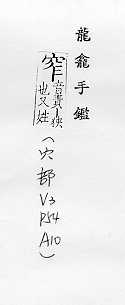 龍龕手鑑
窄音責丨狹也又姓
(穴部V3P54A10)